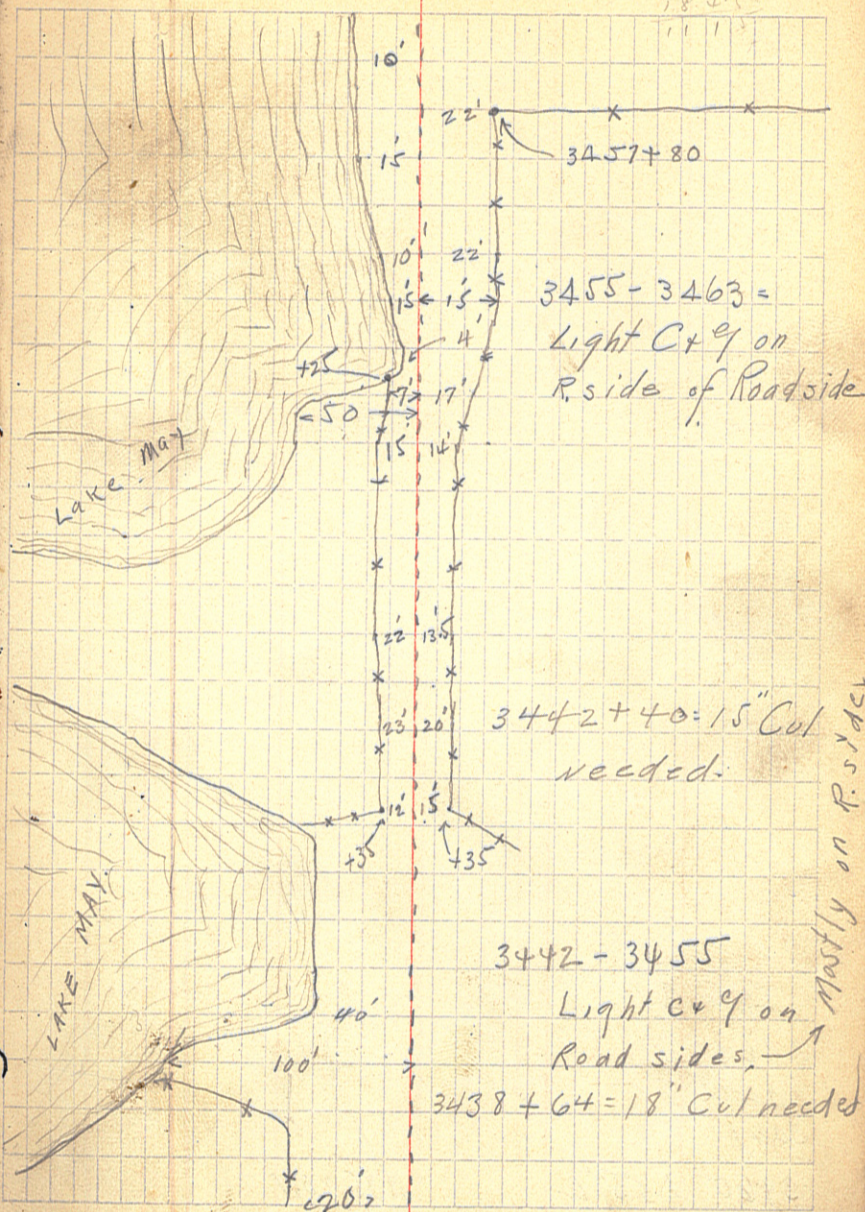 10'
22'
3457+80
15'
10' 22'
15' 15'
3455-3463=
Light C & G on
R. side of Roadside
4'
+25
7' 17'
50
15' 14'
Lake May
22' 13.5
23' 20'
3442+40=15" Cul
needed.
12' 15'
+35 +35
LAKE MAY.
3442-3455
Light C & G on
Road sides. Mostly on R. side
40'
100'
3438+64=18" Cul needed
20'